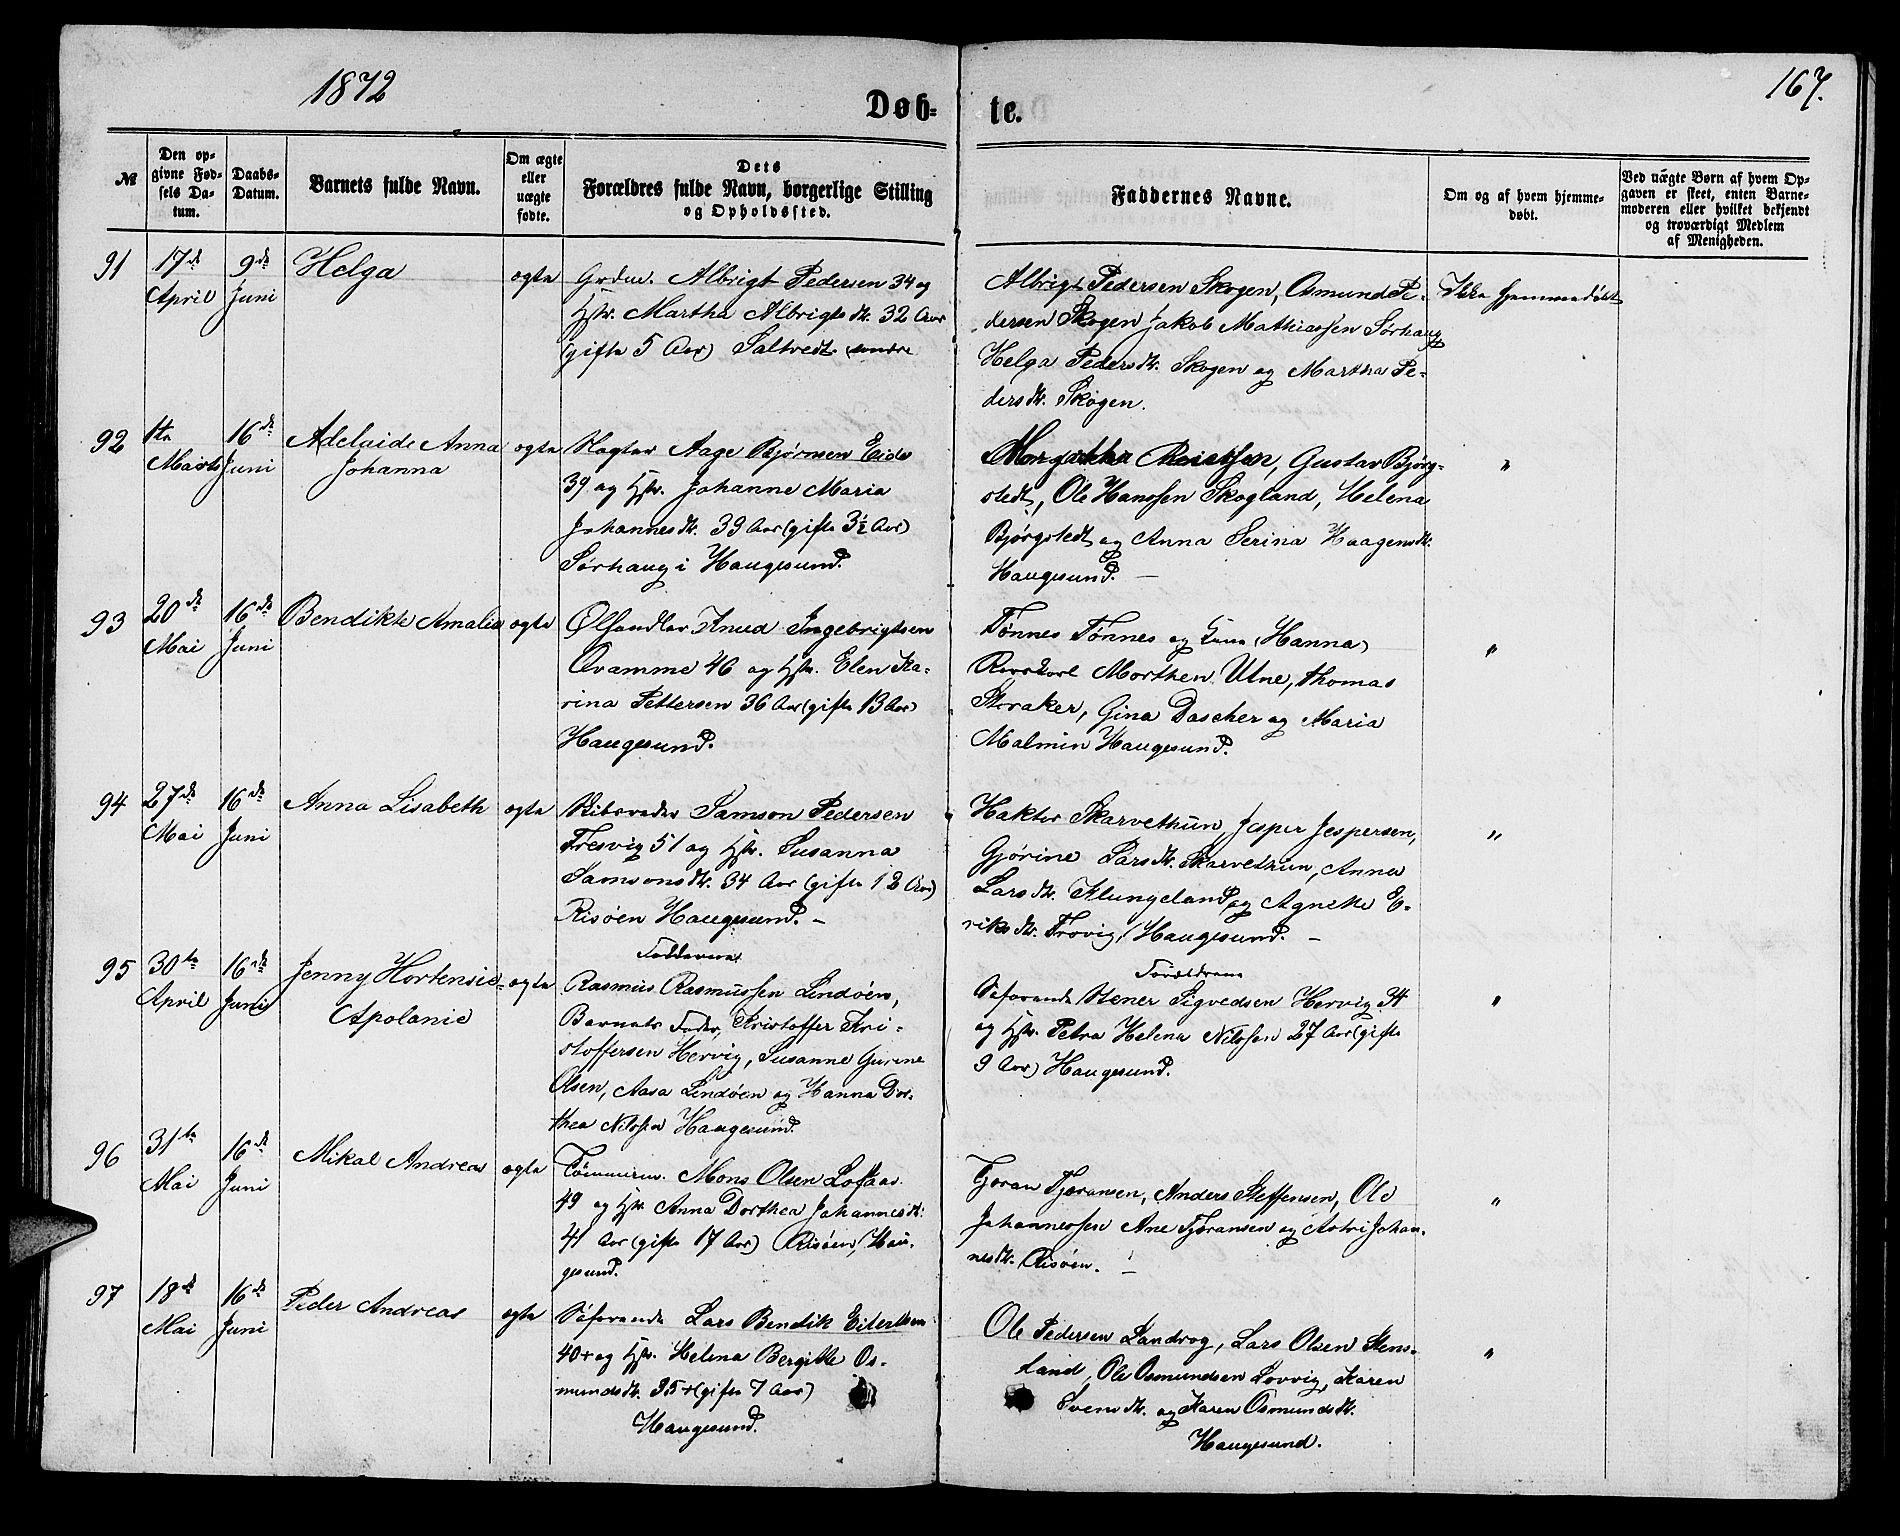 1872
167.
Døb-
te.
№
Den op-
givne Fød-
sels Da-
tum.
Daabs-
Datum.
Barnets fulde Navn.
Om ægte
eller
uægte
fødte.
Dets
Forældres fulde Navn, borgerlige Stilling
og Opholdssted.
Faddernes Navne.
Om og af hvem hjemme-
døbt.
Ved uægte Børn af hvem Op-
gaven er skeet, enten Barne-
moderen eller hvilket bekjendt
og troværdigt Medlem
af Menigheden.
91
17de
April
9de
Juni
Helga
ægte
Grdm. Albrigt Pedersen 34 og
Hstr. Martha Albrigtsdtr. 32 Aar
(gifte 5 Aar) Saltvedt søndre
Albrigt Pedersen Skogen, Osmund Pe-
dersen Skogen Jakob Mathiassen Sørhaug
Helga Pedersdtr. Skogen og Martha Pe-
dersdtr. Skogen.
Ikke hjemmedøbt
92
1ste
Marts
16de
Juni
Adelaide Anna
Johanna
ægte
Slagter Aage Bjørnsen Eide
39 og Hstr. Johanne Maria
Johannesdtr. 39 Aar (gifte 3½ Aar)
Sørhaug i Haugesund.
Gustav Bjørg-
stedt, Ole Hanssen Skogland, Helena
Bjørgstedt og Anna Serina Haagensdtr.
Haugesund. —
"
93
20de
Mai
16de
Juni
Bendikte Amalia
ægte
Ølhandler Knud Ingebrigtsen
Qvamme 46 og Hstr. Elen Ka-
rina Pettersen 36 Aar (gifte 13 Aar)
Haugesund.
Tønnes Tønnes og Kone (Hanna)
Morthen Utne, Thomas
Storaker, Gina Dascher og Maria
Malmin Haugesund.
"
94
27de
Mai
16de
Juni
Anna Lisabeth
ægte
Skibsreder Samson Pedersen
Tresvig 51 og Hstr. Susanna
Samsonsdtr. 34 Aar (gifte 12 Aar)
Risøen Haugesund. —
Haktor Skarvethun, Jesper Jespersen,
Gjørine Larsdtr. Skarvethun, Anna
Larsdtr. Klungeland og Agnethe E-
riksdtr. Trovig, Haugesund. —
"
95
30te
April
16de
Juni
Jenny Hortensie
Apolanie
ægte
Fadderne
Rasmus Rasmussen Lindøen,
Barnets Fader, Kristoffer Kri-
stoffersen Hervig, Susanne Gurine
Olsen, Aasa Lindøen og Hanna Dor-
thea Nilssen Haugesund.
Forældrene
Søfarende Stener Sigvedsen Hervig 34
og Hstr. Petra Helena Nilssen 27 Aar (gifte
9 Aar) Haugesund.
"
96
31te
Mai
16de
Juni
Mikal Andreas
ægte
Tømmerm. Mons Olsen Lofaas
49 og Hstr. Anna Dorthea Johannesdtr.
41 Aar (gifte 17 Aar) Risøen, Hau-
gesund.
Tjøran Tjøransen, Anders Steffensen, Ole
Johannessen Ane Tjøransen og Astri Johan-
nesdtr. Risøen. —
"
97
18de
Mai
16de
Juni
Peder Andreas
ægte
Søfarende Lars Bendik Eilertsen
40 og Hstr. Helena Bergitte Os-
mundsdtr. 35 (gifte 7 Aar)
Haugesund.
Ole Pedersen Sandvog, Lars Olsen Stens-
land, Ole Osmundsen Lovvig, Karen
Svensdtr. og Karen Osmundsdtr.
Haugesund.
"